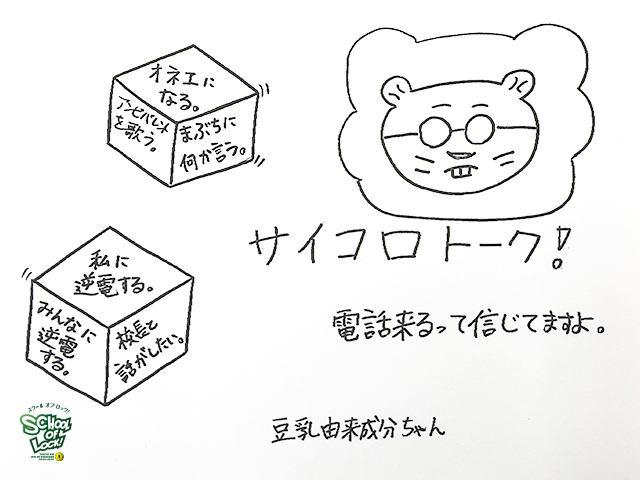 オネエに
なる。
アンビバレント
を歌う。
まぶちに
何か言う。
サイコロトーク!
私に
逆電する。
みんなに
逆電
する。
校長と
話がしたい。
電話来るって信じてますよ。
豆乳由来成分ちゃん
スクール オブ ロック!
SCHOOL
OF
LOCK!